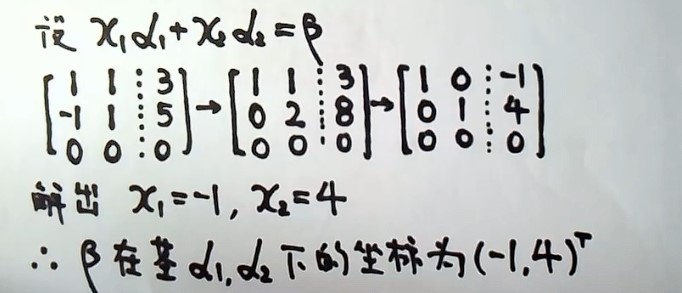 设 x₁α₁+x₂α₂=β
[1 1 ⋮ 3; -1 1 ⋮ 5; 0 0 ⋮ 0] → [1 1 ⋮ 3; 0 2 ⋮ 8; 0 0 ⋮ 0] → [1 0 ⋮ -1; 0 1 ⋮ 4; 0 0 ⋮ 0]
解出 x₁=-1, x₂=4
∴ β在基α₁,α₂下的坐标为(-1,4)ᵀ